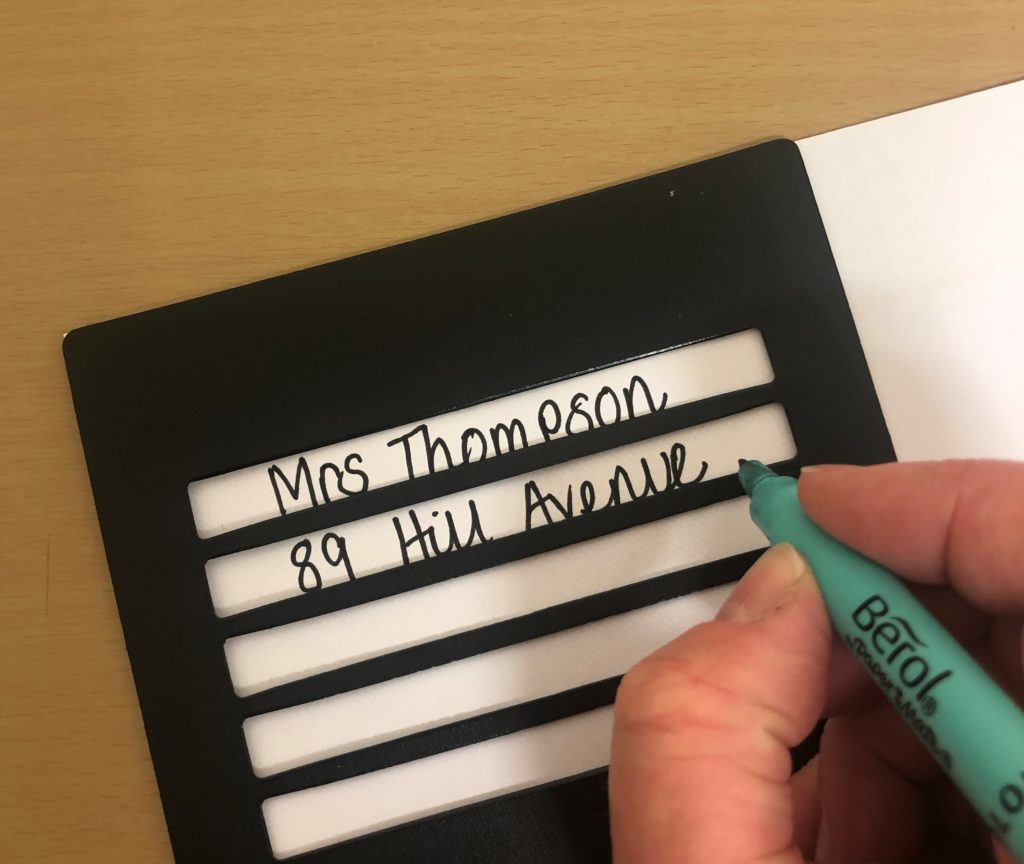 Mrs Thompson
89 Hill Avenue
Berol®